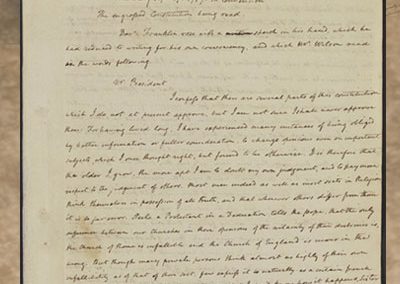 in Convention
The engrossed Constitution being read.
Docr. Franklin rose with a speech in his hand, which he
had reduced to writing for his own conveniency, and which Mr. Wilson read
in the words following.
Mr. President
I confess that there are several parts of this constitution
which I do not at present approve, but I am not sure I shall never approve
them: For having lived long, I have experienced many instances of being obliged
by better information or fuller consideration, to change opinions even on important
subjects, which I once thought right, but found to be otherwise. It is therefore that
the older I grow, the more apt I am to doubt my own judgment, and to pay more
respect to the judgment of others. Most men indeed as well as most sects in Religion,
think themselves in possession of all truth, and that wherever others differ from them
it is so far error. Steele a Protestant in a Dedication tells the Pope, that the only
difference between our Churches in their opinions of the certainty of their doctrines is,
the Church of Rome is infallible and the Church of England is never in the
wrong. But though many private persons think almost as highly of their own
infallibility as of that of their sect, few express it so naturally as a certain french
it happens, Sister